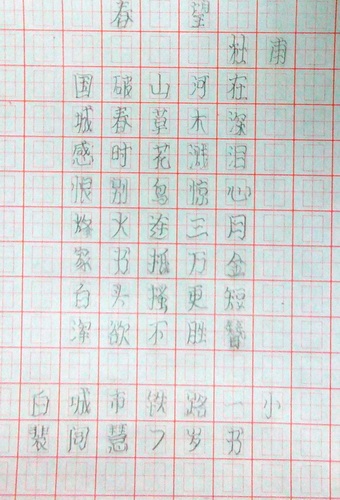 春望
杜甫
国破山河在
城春草木深
感时花溅泪
恨别鸟惊心
烽火连三月
家书抵万金
白头搔更短
浑欲不胜簪
白城市铁路一小
裴闻慧7岁书